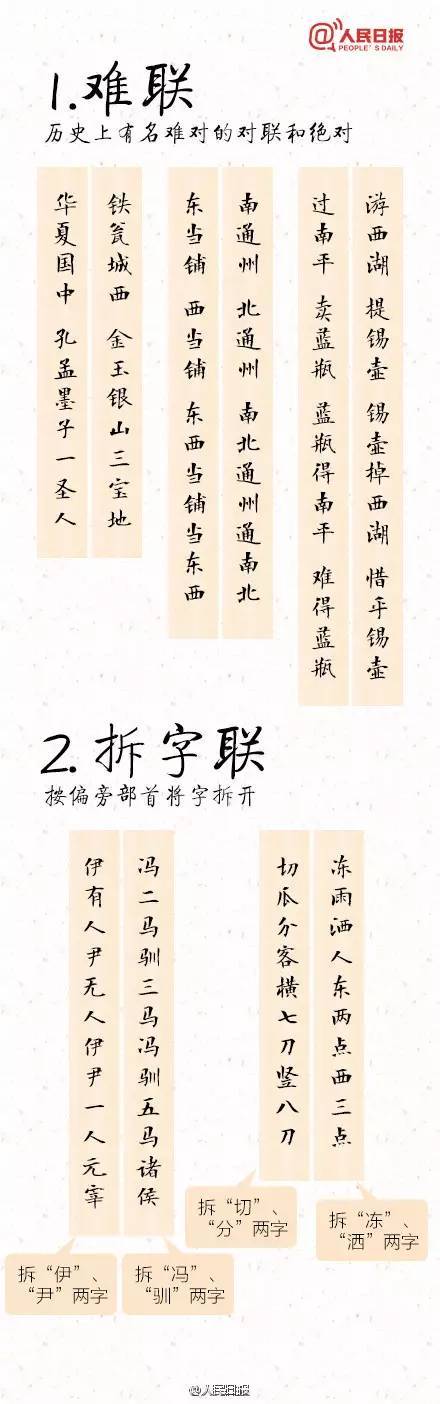 @人民日报
PEOPLE'S DAILY
1.难联
历史上有名难对的对联和绝对
游西湖 提锡壶 锡壶掉西湖 惜乎锡壶
过南平 卖蓝瓶 蓝瓶得南平 难得蓝瓶
南通州 北通州 南北通州通南北
东当铺 西当铺 东西当铺当东西
铁瓮城西 金玉银山三宝地
华夏国中 孔孟墨子一圣人
2.拆字联
按偏旁部首将字拆开
冻雨洒人东两点西三点
切瓜分客横七刀竖八刀
冯二马驯三马冯驯五马诸侯
伊有人尹无人伊尹一人元宰
拆“冻”、
“洒”两字
拆“切”、
“分”两字
拆“冯”、
“驯”两字
拆“伊”、
“尹”两字
@人民日报